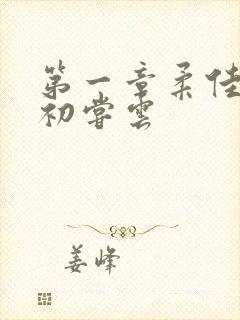 第一章柔佳
初尝云
姜峰